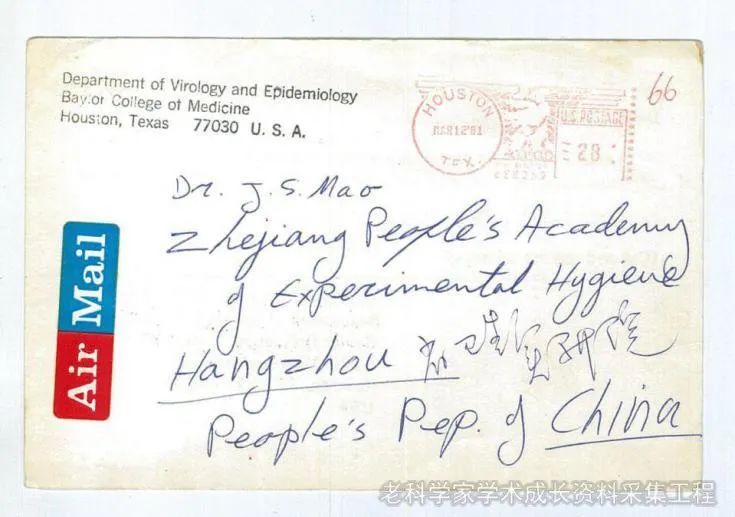 Department of Virology and Epidemiology
Baylor College of Medicine
Houston, Texas 77030 U. S. A.
HOUSTON
MAR 12 '81
TEX.
U.S. POSTAGE
28
66
Air Mail
Dr. J. S. Mao
Zhejiang People's Academy
of Experimental Hygiene
Hangzhou 卫生研院
People's Rep. of China
老科学家学术成长资料采集工程